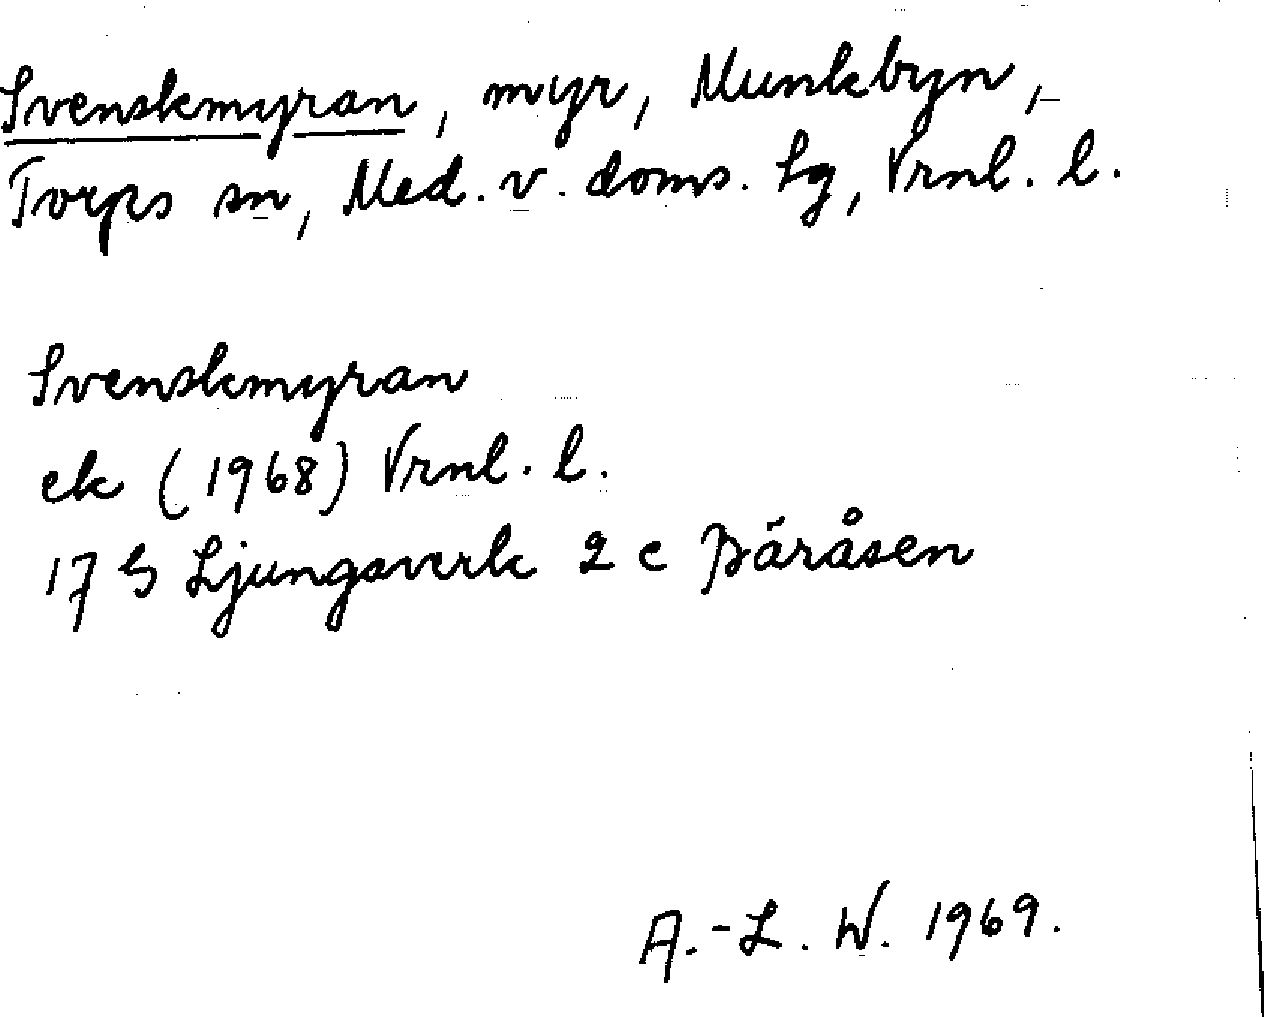 Svenskmyran, myr, Munkbyn,
Torps sn, Med. v. doms. tg, Vrnl. l.
Svenskmyran
ek (1968) Vrnl. l.
17 G Ljungaverk 2 c Bäråsen
A.-L. W. 1969.